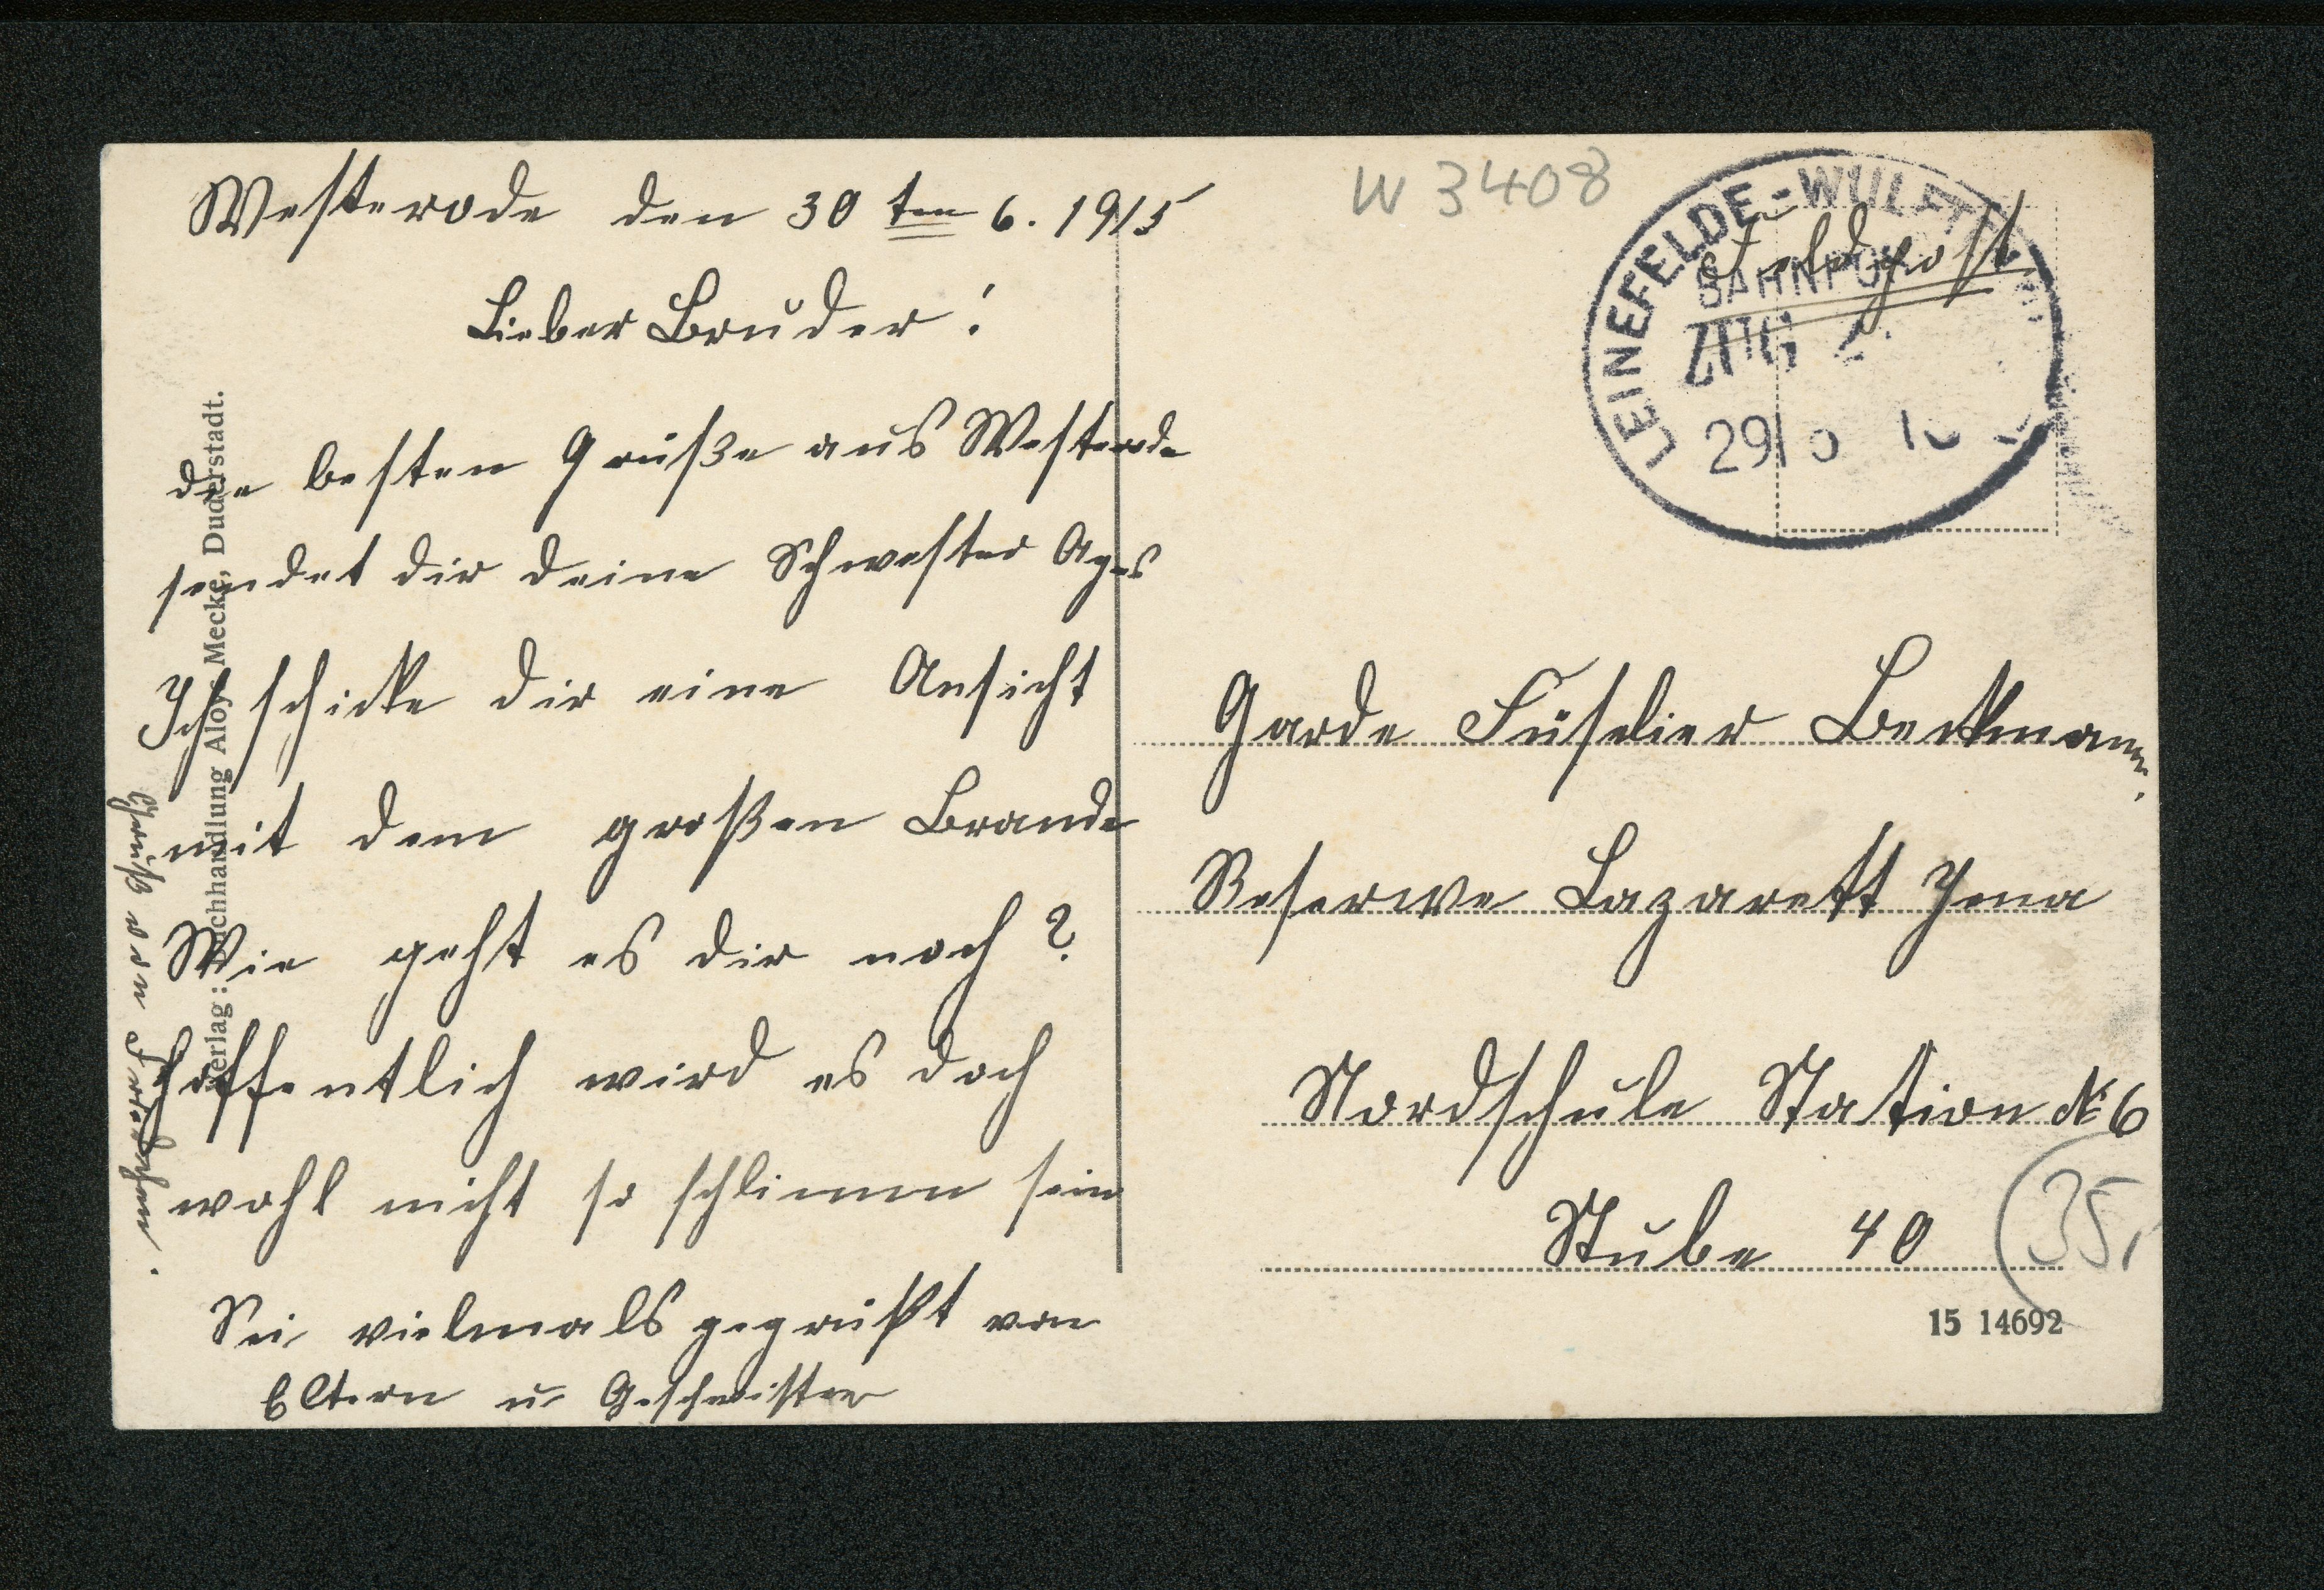 Westerode den 30 ten 6. 1915
Lieber Bruder!
die besten Grüße aus Westerode
sendet dir deine Schwester Agnes
Ich schicke dir eine Ansicht
mit dem großen Brande
Wie geht es dir noch?
hoffentlich wird es doch
wohl nicht so schlimm sein
Sei vielmals gegrüßt von
Eltern u Geschwister
Gruß von
Verlag: Buchhandlung Aloys Mecke, Duderstadt.
W 3408
Feldpost
LEINEFELDE-WULFT
BAHNPOST
ZUG
29
Garde Füselier Beckmann.
Reserwe Lazarett Jena
Nordschule Station № 6
Stube 40
35,
15 14692